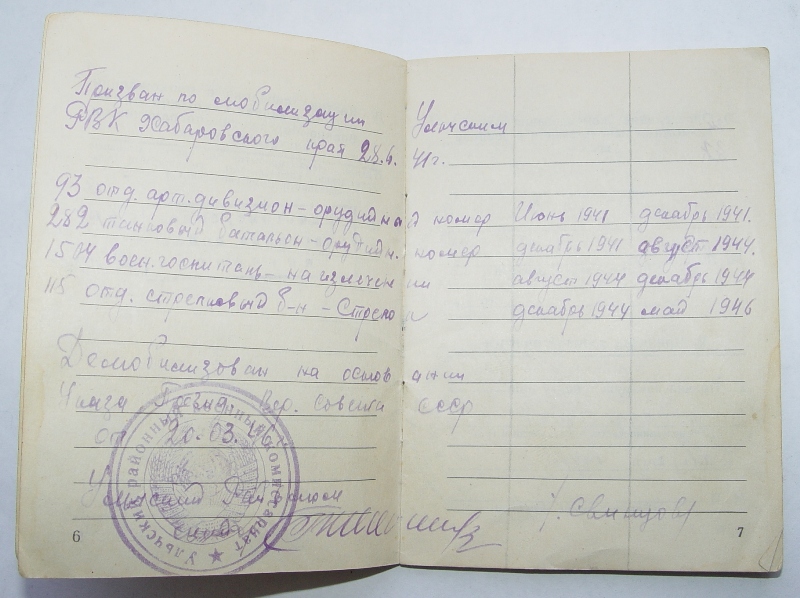 Призван по мобилизации Ульчским
РВК Хабаровского края 28.6. 41г.
93 отд. арт. дивизион – орудийный номер Июнь 1941 декабрь 1941.
282 танковый батальон – орудийн. номер декабрь 1941 август 1944.
1504 воен. госпиталь – на излечении август 1944 декабрь 1944
115 отд. стрелковый б-н – Стрелок декабрь 1944 май 1946
Демобилизован на основании
Указа Презид. Вер. Совета СССР
от 20.03.46
Ульчский Райвоенком
УЛЬЧСКИЙ РАЙОННЫЙ ВОЕННЫЙ КОМИССАРИАТ
6
7